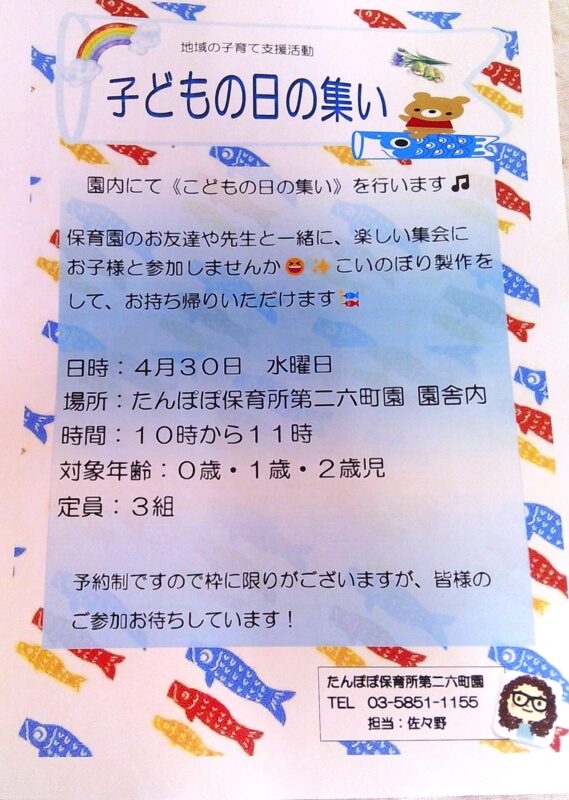 地域の子育て支援活動
子どもの日の集い
園内にて《こどもの日の集い》を行います🎵
保育園のお友達や先生と一緒に、楽しい集会に
お子様と参加しませんか😆✨こいのぼり製作を
して、お持ち帰りいただけます🎏
日時：４月３０日　水曜日
場所：たんぽぽ保育所第二六町園 園舎内
時間：１０時から１１時
対象年齢：０歳・１歳・２歳児
定員：３組
予約制ですので枠に限りがございますが、皆様の
ご参加お待ちしています！
たんぽぽ保育所第二六町園
TEL　03-5851-1155
担当：佐々野